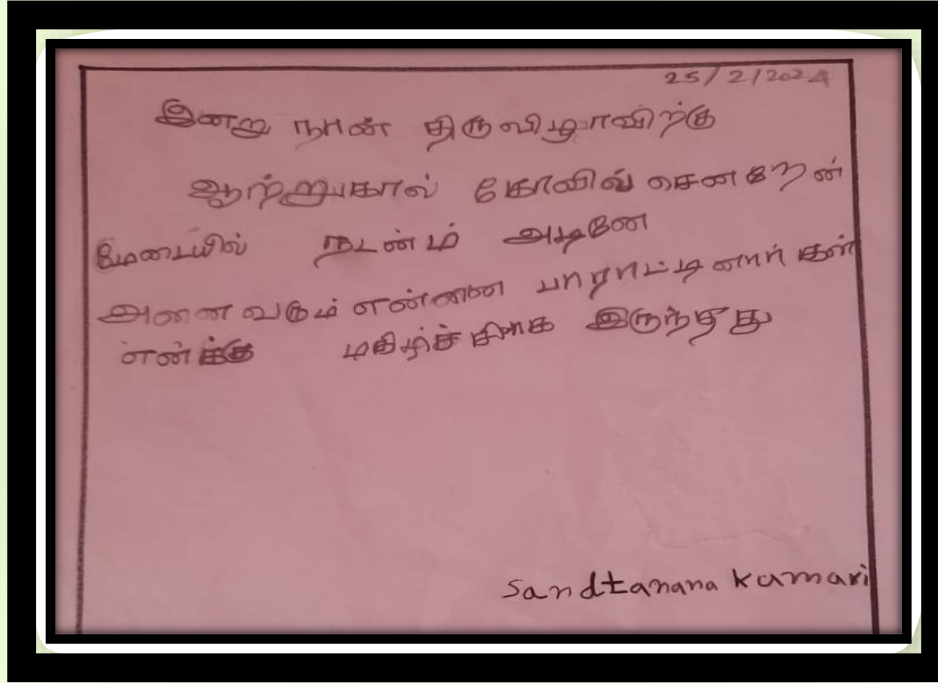 25/2/2024
இனறு நான் திருவிழாவிற்கு
ஆற்றுகால் கோவில் செனறேன்
மேடையில் நடன்ம் அடினே
அனைவரும் என்னை பாராட்டினார்கள்
மகிழ்ச்சிாக இருந்தது
Sandtanana Kumari